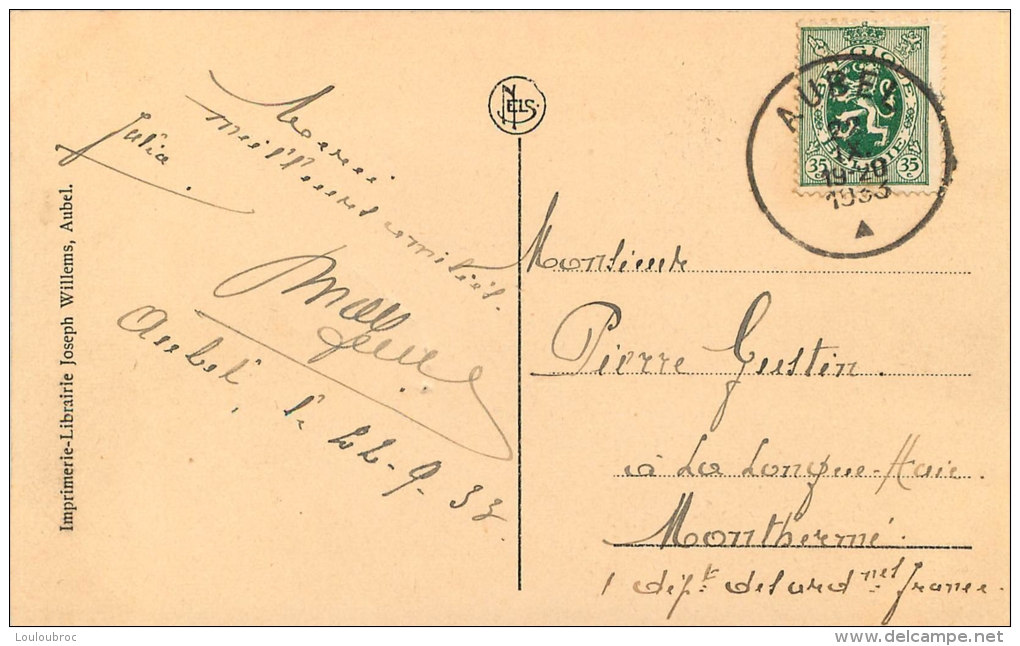 Meilleures amitiés.
Julia
Aubel, le 22-9-33.
Imprimerie-Librairie Joseph Willems, Aubel.
NELS
BELGIQUE
BELGIE
35 c
35 c
AUBEL
22
IX
19-20
1933
Monsieur
Pierre Gustin.
à La Longue-Haie.
Monthermé.
dépt des ard nes france.
Louloubroc
www.delcampe.net